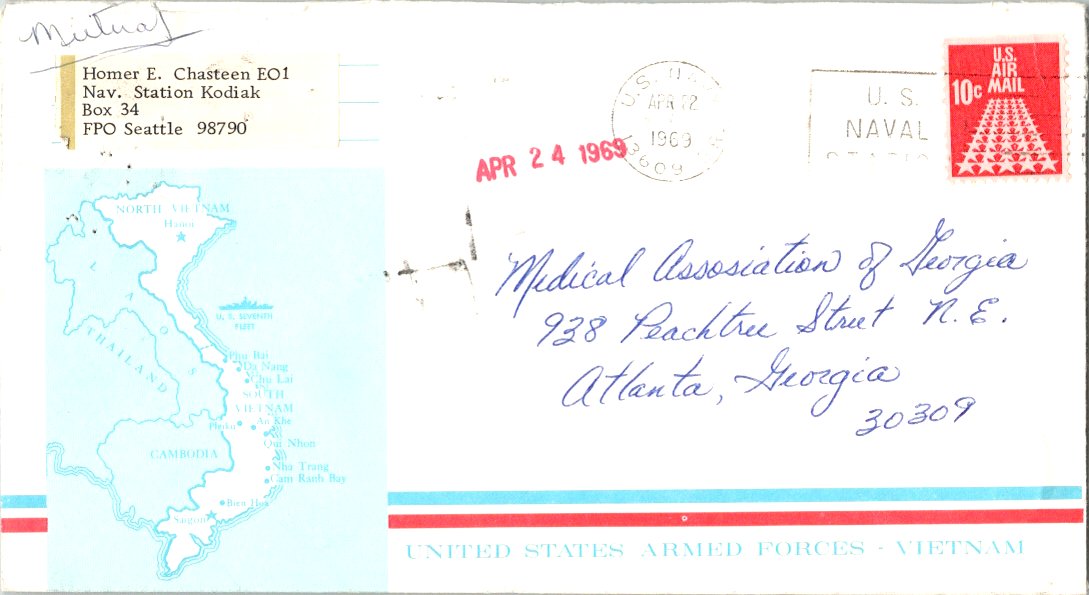 Mutual
Homer E. Chasteen EO1
Nav. Station Kodiak
Box 34
FPO Seattle 98790
APR 24 1969
APR 22
1969
13609
U. S.
NAVAL
U.S.
AIR
MAIL
10c
Medical Assosiation of Georgia
938 Peachtree Street N.E.
Atlanta, Georgia
30309
NORTH VIETNAM
Hanoi
LAOS
THAILAND
U. S. SEVENTH
FLEET
Phu Bai
Da Nang
Chu Lai
SOUTH
VIETNAM
Pleiku
An Khe
Qui Nhon
CAMBODIA
Nha Trang
Cam Ranh Bay
Bien Hoa
Saigon
UNITED STATES ARMED FORCES - VIETNAM